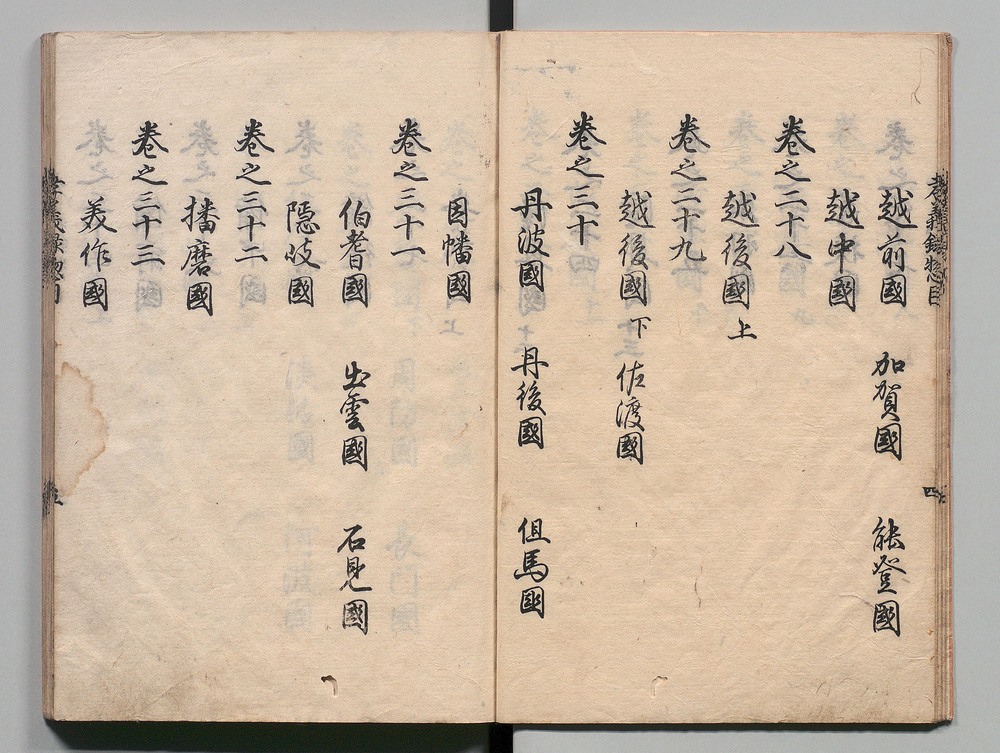 越前國 加賀國 能登國
越中國
卷之二十八
越後國上
卷之二十九
越後國下 佐渡國
卷之三十
丹波國 丹後國 但馬國
因幡國
卷之三十一
伯耆國 出雲國 石見國
隠岐國
卷之三十二
播磨國
卷之三十三
美作國